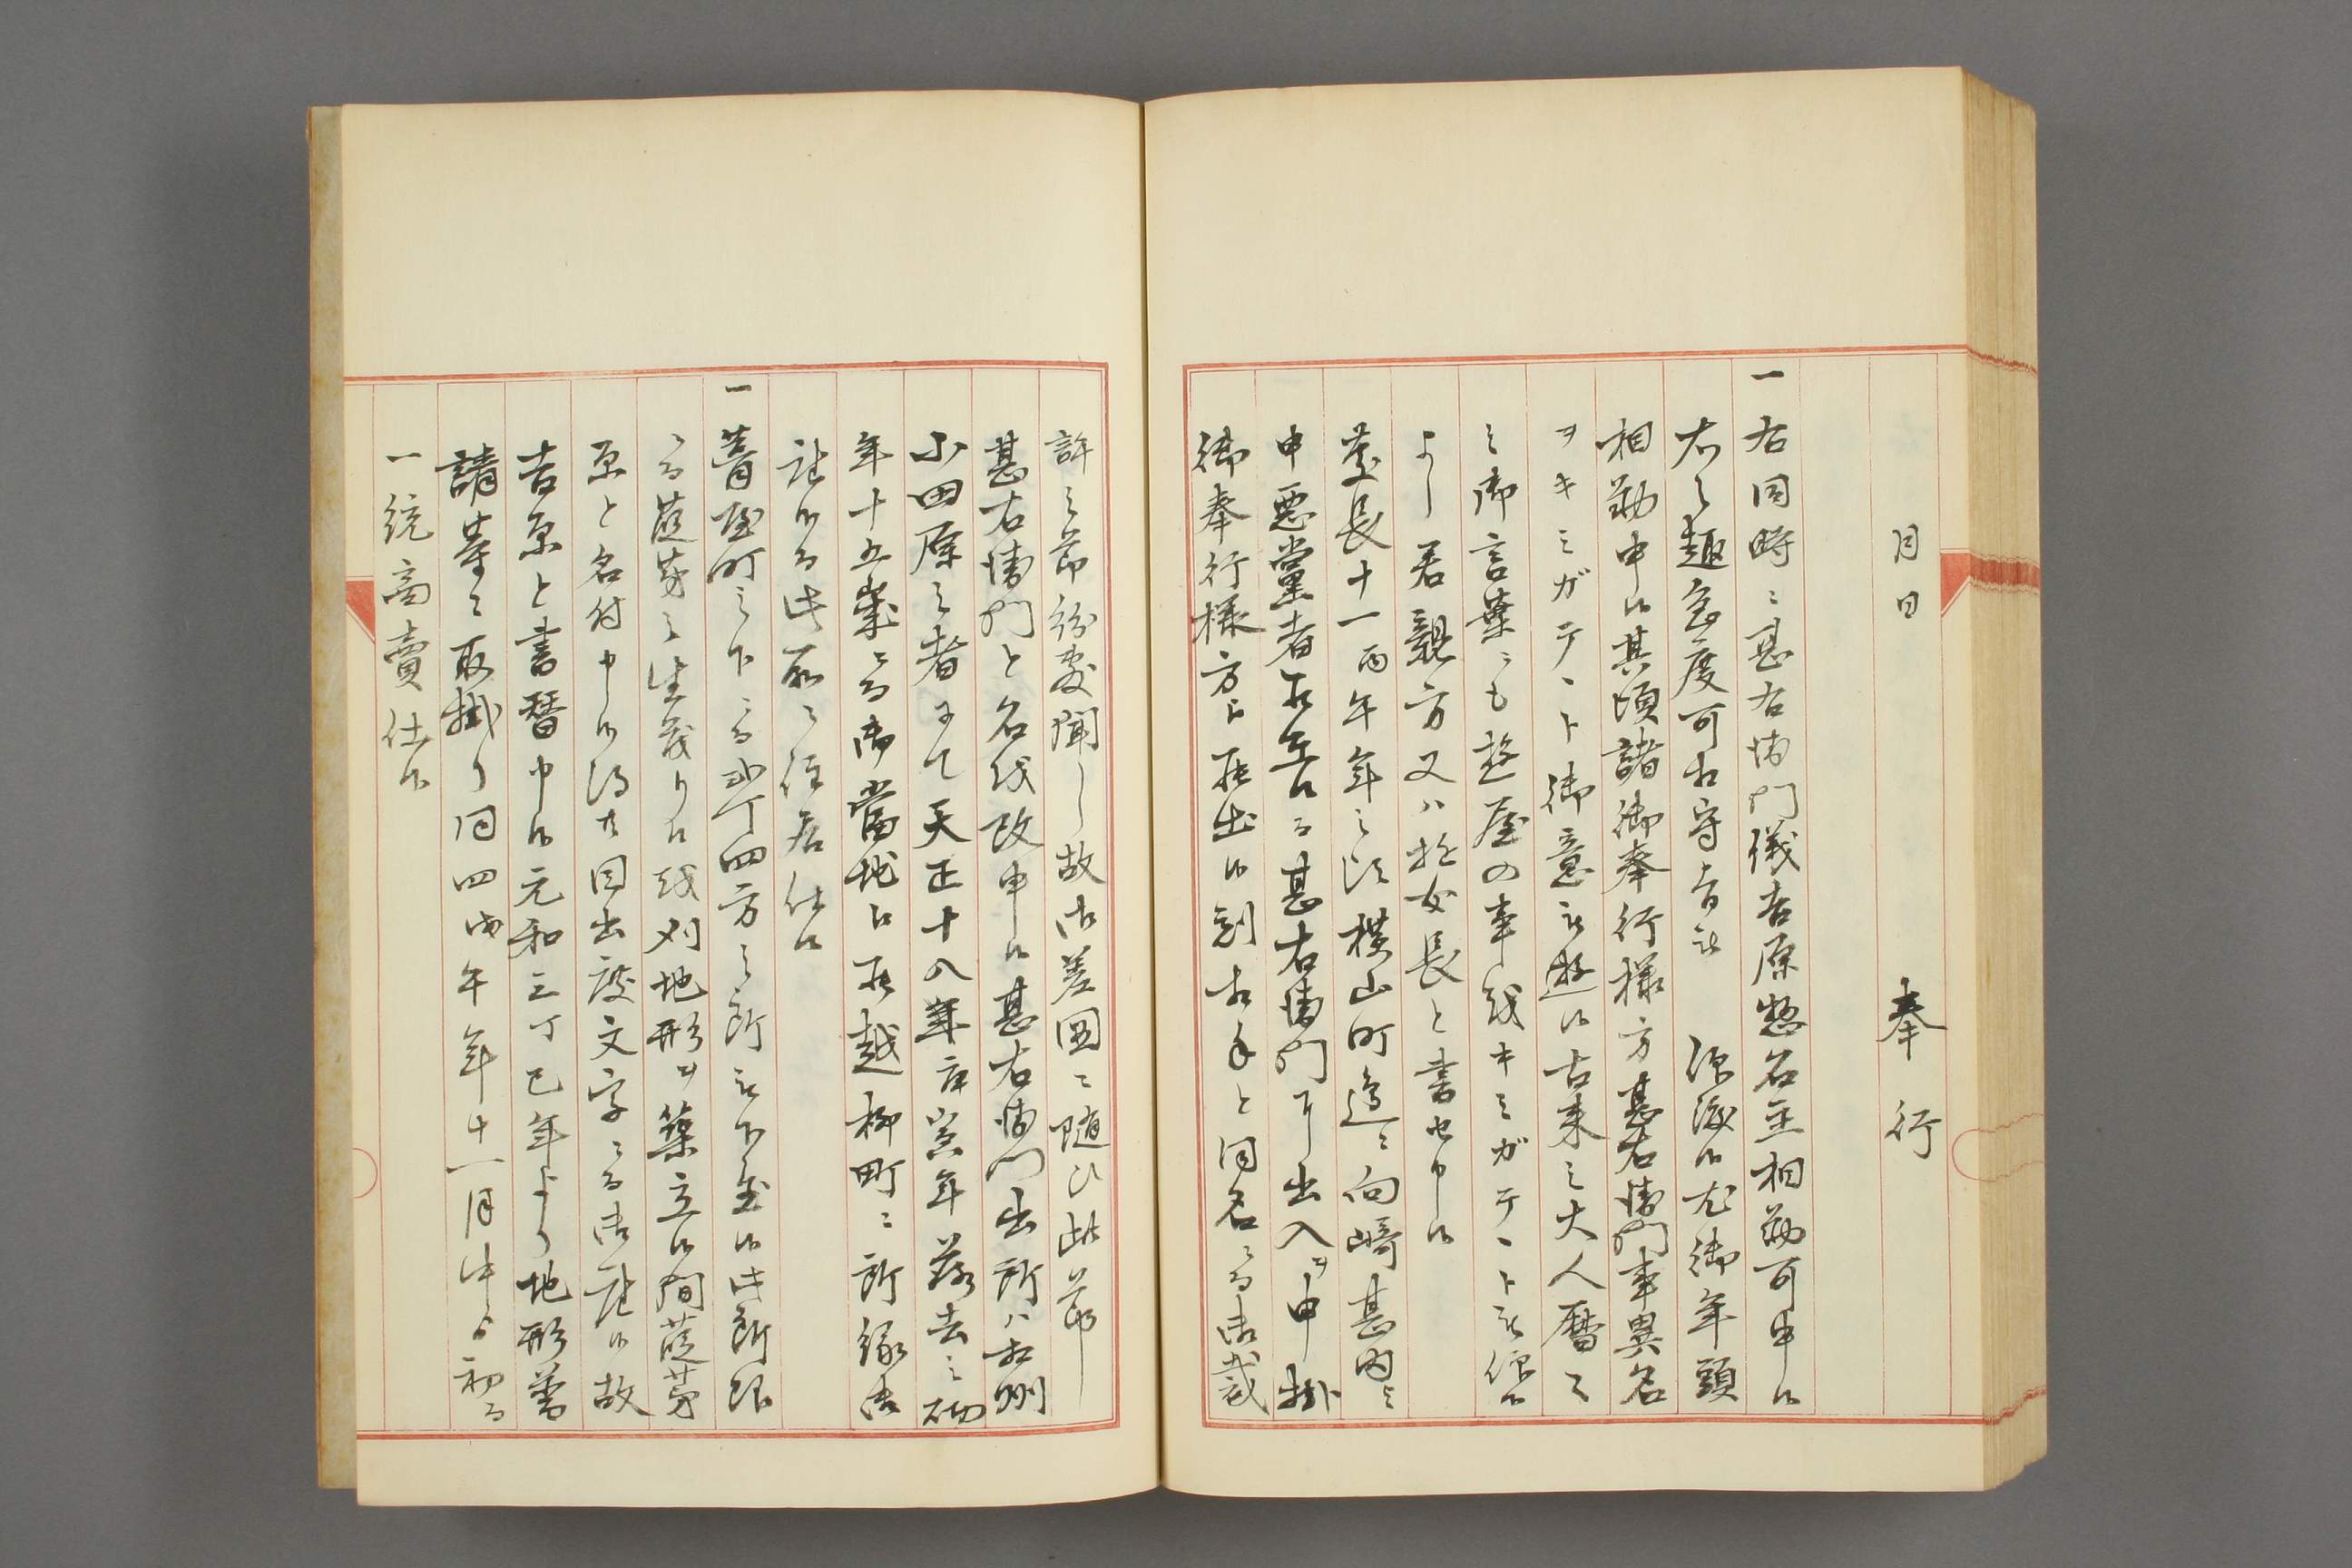 月日　　　奉行
一右同時ニ甚右衛門儀吉原惣名主相勤可申候
右之趣急度可相守旨被　仰渡候尤御年頭
相勤申候其頃諸御奉行様方甚右衛門事異名
ヲキミガテヽト御意被遊候古来之大人暦々
之御言葉ニも遊屋の事をキミガテヽト被仰候
よし君親方又ハ遊女長と書申候
慶長十一丙午年之頃横山町辺ニ向崎甚内と
申悪党者在吉ニ而甚右衛門江出入ヲ申掛
御奉行様方江罷出候刻相手と同名ニ而御裁
許之節紛敷聞し故御差図ニ随ひ此節
甚右衛門と名を改申候甚右衛門出所ハ相州
小田原之者にて天正十八年庚寅年落去之砌
年十五歳ニ而御当地江罷越柳町ニ所縁御
座候而此所ニ住居仕候
一葺屋町之下ニ而弐丁四方之所被下置候此所限
ニ而葭茅之生茂り候を刈地形ヲ築立候間葭茅
原と名付申候得共目出度文字ニ而御座候故
吉原と書替申候元和三丁巳年より地形普
請等ニ取掛り同四戊午年十一月中より初而
一統商売仕候